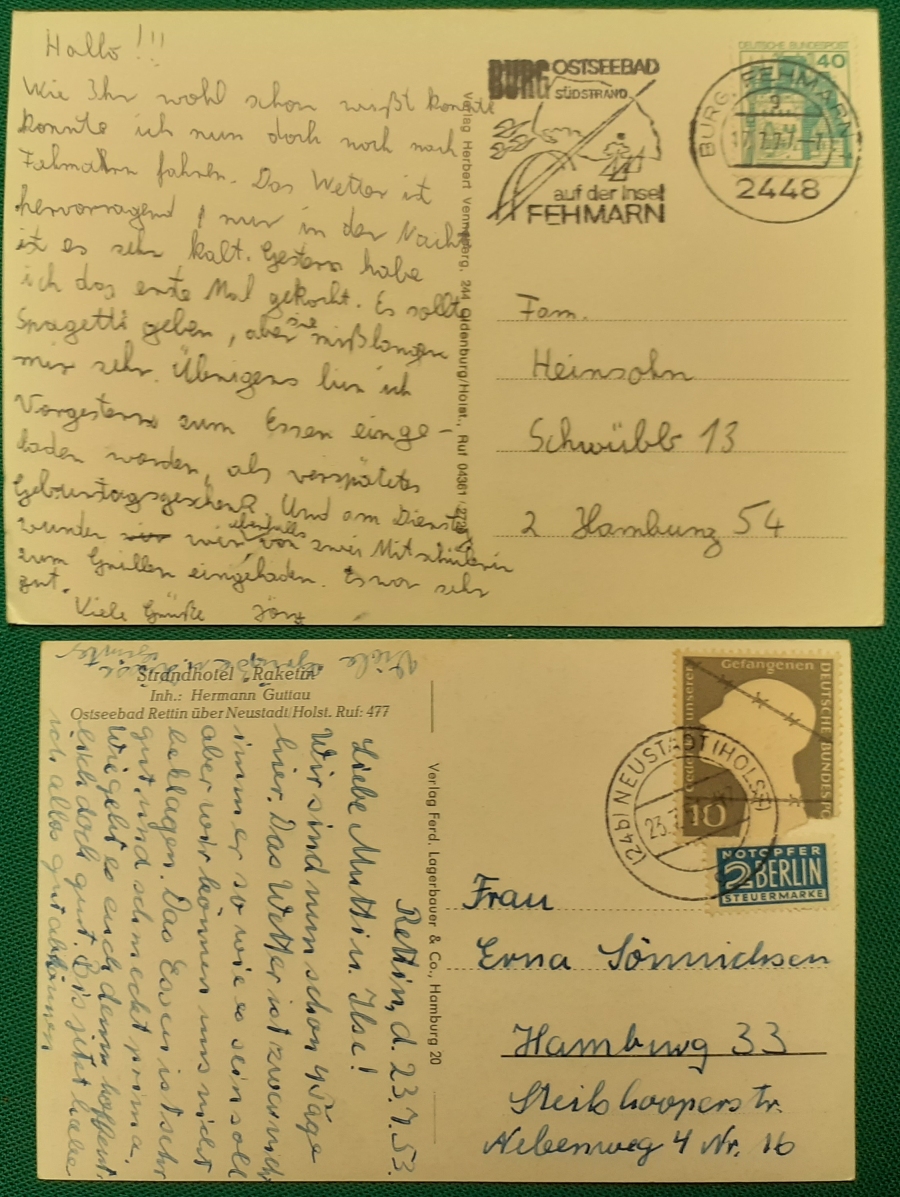 Hallo!!!
Wie Ihr wohl schon wußt konnte
konnte ich nun doch noch nach
Fehmahrn fahren. Das Wetter ist
hervorragend, nur in der Nacht
ist es sehr kalt. Gestern habe
ich das erste Mal gekocht. Es sollte
Spagetti geben, aber sie mißlangen
mir sehr. Übrigens bin ich
Vorgestern zum Essen einge-
laden worden, als verspätetes
Geburtstagsgeschenk. Und am Dienstag
wurden wir ebenfalls von zwei Mitschülerin
zum Grillen eingeladen. Es war sehr
gut.
Viele Grüße Jörg
Verlag Herbert Vennsberg, 244 Oldenburg/Holst., Ruf 04361
BURG OSTSEEBAD
SÜDSTRAND
auf der Insel
FEHMARN
DEUTSCHE BUNDESPOST
40
BURG, FEHMARN
g
2448
Fam.
Heinsohn
Schwübb 13
2 Hamburg 54
Strandhotel „Raketin"
Inh.: Hermann Guttau
Ostseebad Rettin über Neustadt/Holst. Ruf: 477
Rettin, d. 23.7.53.
Liebe Mutti u. Ilse!
Wir sind nun schon 4 Tage
hier. Das Wetter ist zwar nicht
immer so wie es sein soll
aber wir können uns nicht
beklagen. Das Essen ist sehr
gut und schmeckt prima.
Wie geht es euch denn hoffent-
lich doch gut. Bis jetzt habe
ich alles gut abkönnen
Viele
Verlag Ferd. Lagerbauer & Co., Hamburg 20
Gedenket unserer Gefangenen
DEUTSCHE BUNDESPO
10
(24b) NEUSTADT (HOLST)
23.7.
NOTOPFER
2 BERLIN
STEUERMARKE
Frau
Erna Sönnichsen
Hamburg 33
Steilshooperstr.
Nebenweg 4 Nr. 16